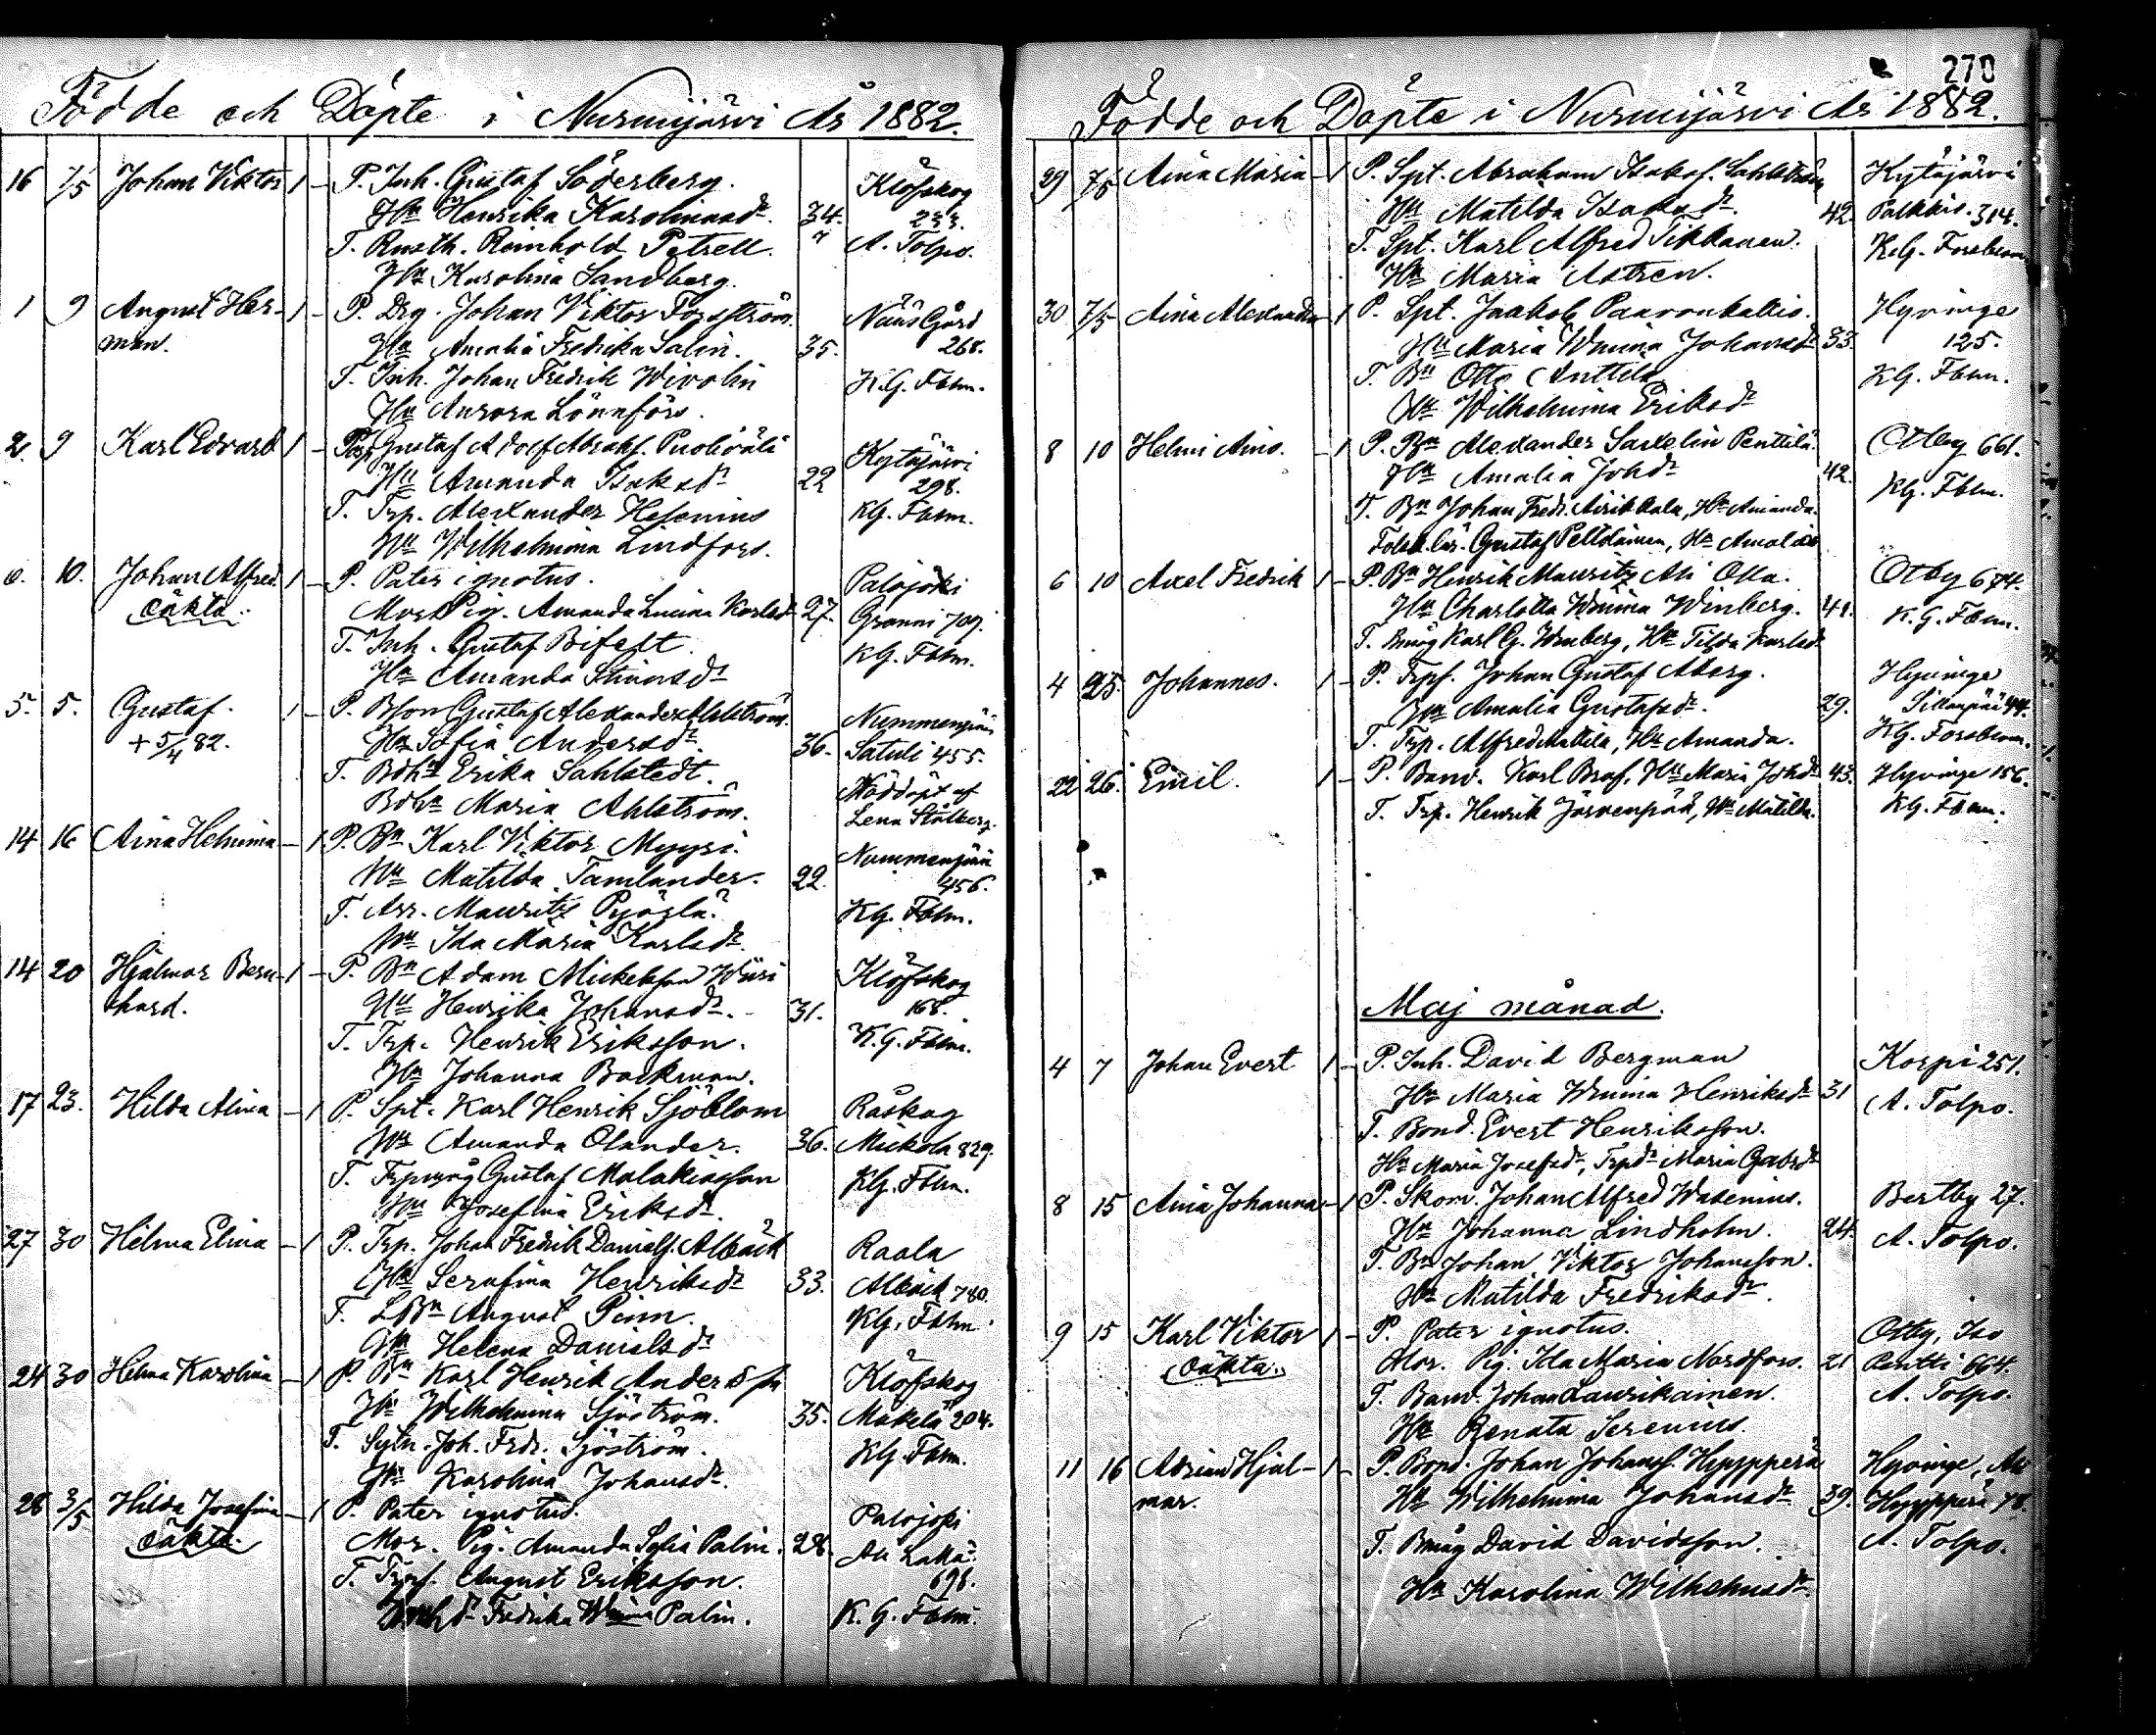 270
Födde och Döpte i Nurmijärvi År 1882.
16 7/5 Johan Viktor 1 - P. Inh. Gustaf Söderberg. Klöfskog
Hu Henrika Karolinasdr. 34. 233.
T. Rusth. Reinhold Petrell. A. Tolpo.
Hu Karolina Sandberg.
1 9 August Her- 1 - P. Drg. Johan Viktor Forsström. Näås Gård
man. Hu Amalia Fredrika Salin. 35. 268.
T. Inh. Johan Fredrik Wivolin K.G. Fblm.
Hu Aurora Lönnfors.
2. 9 Karl Edvard 1 - Torp. Gustaf Adolf Abrahf. Puoliväli Kytäjärvi
Hu Amanda Isaksdr 22 298.
T. Trp. Alexander Helenius KG. Fblm.
Hu Wilhelmina Lindfors.
6. 10. Johan Alfred. 1 - P. Pater ignotus. Palojoki
oäkta. Mor Pig. Amanda Lucina Karlsdr 27. Granni 709.
T. Inh. Gustaf Bifelt. KG. Fblm.
Hu Amanda
5. 5. Gustaf. 1 - P. Bson Gustaf Alexander Ahlström. Nummenpää
+ 5/4 82. Hu Sofia Andersdr. 36. Satuli 455.
T. Bdhr Erika Sahlstedt. Nöddöpt af
Bdhr Maria Ahlström. Lena Stålberg.
14 16 Aina Helmina - 1 P. Bn Karl Viktor Myyri. Nummenpää
Hu Matilda Tamlander. 22. 456.
T. Arr. Mauritz Pyörlä. KG. Fblm.
Hu Ida Maria Karlsdr.
14 20 Hjalmar Bern- 1 - P. Bn Adam Mickelsson Klöfskog
hard. Hu Henrika Johansdr. 31. 168.
T. Trp. Henrik Eriksson. K.G. Fblm.
Hu Johanna Backman.
17 23. Hilda Alina - 1 P. Spt. Karl Henrik Sjöblom Råskog
Hu Amanda Olander. 36. Mickola 829.
T. Trpmåg Gustaf Malakiasson KG. Fblm.
Hu Josefina Eriksdr.
27 30 Hilma Elina - 1 P. Trp. Johan Fredrik Danielsf. Albäck Raala
Hu Serafina Henriksdr 33. Albäck 780.
T. LBn August Penn. KG. Fblm.
Hu Helena Danielsdr
24 30 Helma Karolina - 1 P. Bn Karl Henrik Andersson Klöfskog
Hu Wilhelmina Sjöström. 35. Mäkelä 204.
T. Sytn. Joh. Frdr. Sjöström. KG. Fblm.
Hu Karolina Johansdr.
28 3/5 Hilda Josefina - 1 P. Pater ignotus. Palojoki
oäkta. Mor. Pig. Amanda Sofia Palin. 28. Ali
T. Trpf. August Eriksson. 698.
Fredrika Wmina Palin. K.G. Fblm.
Födde och Döpte i Nurmijärvi År 1882.
29 7/5 Aina Maria - 1 P. Spt. Abraham Isaksf. Sahlström Kytäjärvi
Hu Matilda Isaksdr. 42. Palkkis. 314.
T. Spt. Karl Alfred Tikkanen. K.G. Forsblom
Hu Maria Astren.
30 7/5 Aina Alexandra - 1 P. Spt. Jaakob Paavonkallio. Hyvinge
Hu Maria Wmina Johansdr 33. 125.
T. Bn Otto Anttila KG. Fblm.
Hu Wilhelmina Eriksdr
8 10 Helmi Aino. - 1 P. Bn Alexander Saxelin Penttilä. Otlby 661.
Hu Amalia Johdr 42. KG. Fblm.
T. Bn Johan Fredr. Airikkala, Hu Amanda.
Folksk.lär. Gustaf Peltoainen, Hu Amalia
6 10 Axel Fredrik 1 - P. Bn Henrik Mauritz Ali Olla. Otby 674.
Hu Charlotta Wmina Winberg. 41. K.G. Fblm.
T. Bmåg Karl G. Winberg, Hu Tilda Karlsdr
4 25. Johannes. 1 - P. Trpf. Johan Gustaf Åberg. Hyvinge
Hu Amalia Gustafsdr. 29. Sillanpää 44.
T. Trp. Alfred Mattila, Hu Amanda. KG. Forsblom.
22 26. Emil. 1 - P. Banv. Karl Braf, Hu Maria Johdr 43. Hyvinge 156.
T. Trp. Henrik Järvenpää, Hu Matilda. KG. Fblm.
Maj månad.
4 7 Johan Evert 1 - P. Inh. David Bergman Korpi 251.
Hu Maria Wmina Henriksdr 31 A. Tolpo.
T. Bond. Evert Henriksson.
Hu Maria Josefsdr, Trpdr Maria Gabrdr
8 15 Aina Johanna - 1 P. Skom. Johan Alfred Wasenius. Bertby 27.
Hu Johanna Lindholm. 24. A. Tolpo.
T. Bn Johan Viktor Johansson.
Hu Matilda Fredriksdr.
9 15 Karl Viktor 1 - P. Pater ignotus. Otby, Iso
oäkta. Mor. Pig. Ida Maria Nordfors. 21 Pentti 664.
T. Banv. Johan Laurikainen. A. Tolpo.
Hu Renata Serenius.
11 16 Adrian Hjal- 1 - P. Bond. Johan Johansf. Hyypperä Hyvinge, Ali
mar. Hu Wilhelmina Johansdr 39. Hyypperä 78.
T. Bmåg David Davidsson. A. Tolpo.
Hu Karolina Wilhelmsdr.